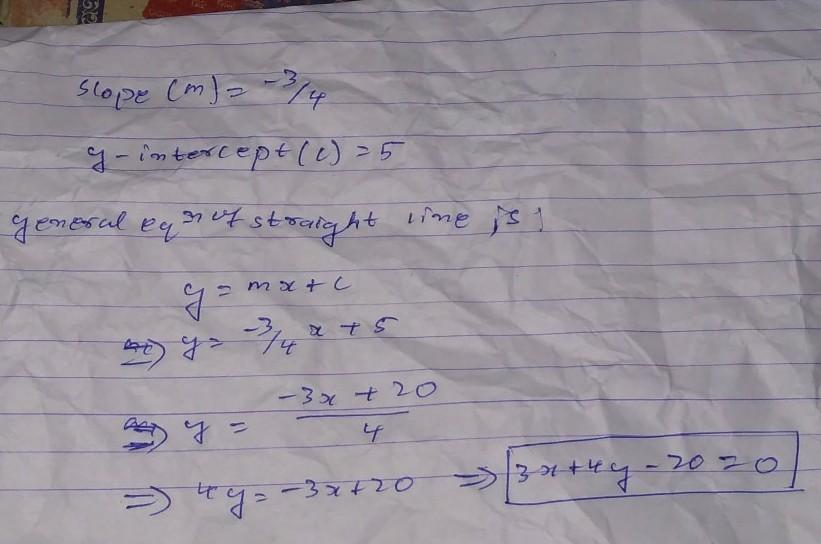 slope (m) = -3/4
y-intercept (c) = 5
general eqn of straight line is;
y = mx + c
⇒ y = -3/4 x + 5
⇒ y = (-3x + 20)/4
⇒ 4y = -3x + 20 ⇒ 3x + 4y - 20 = 0